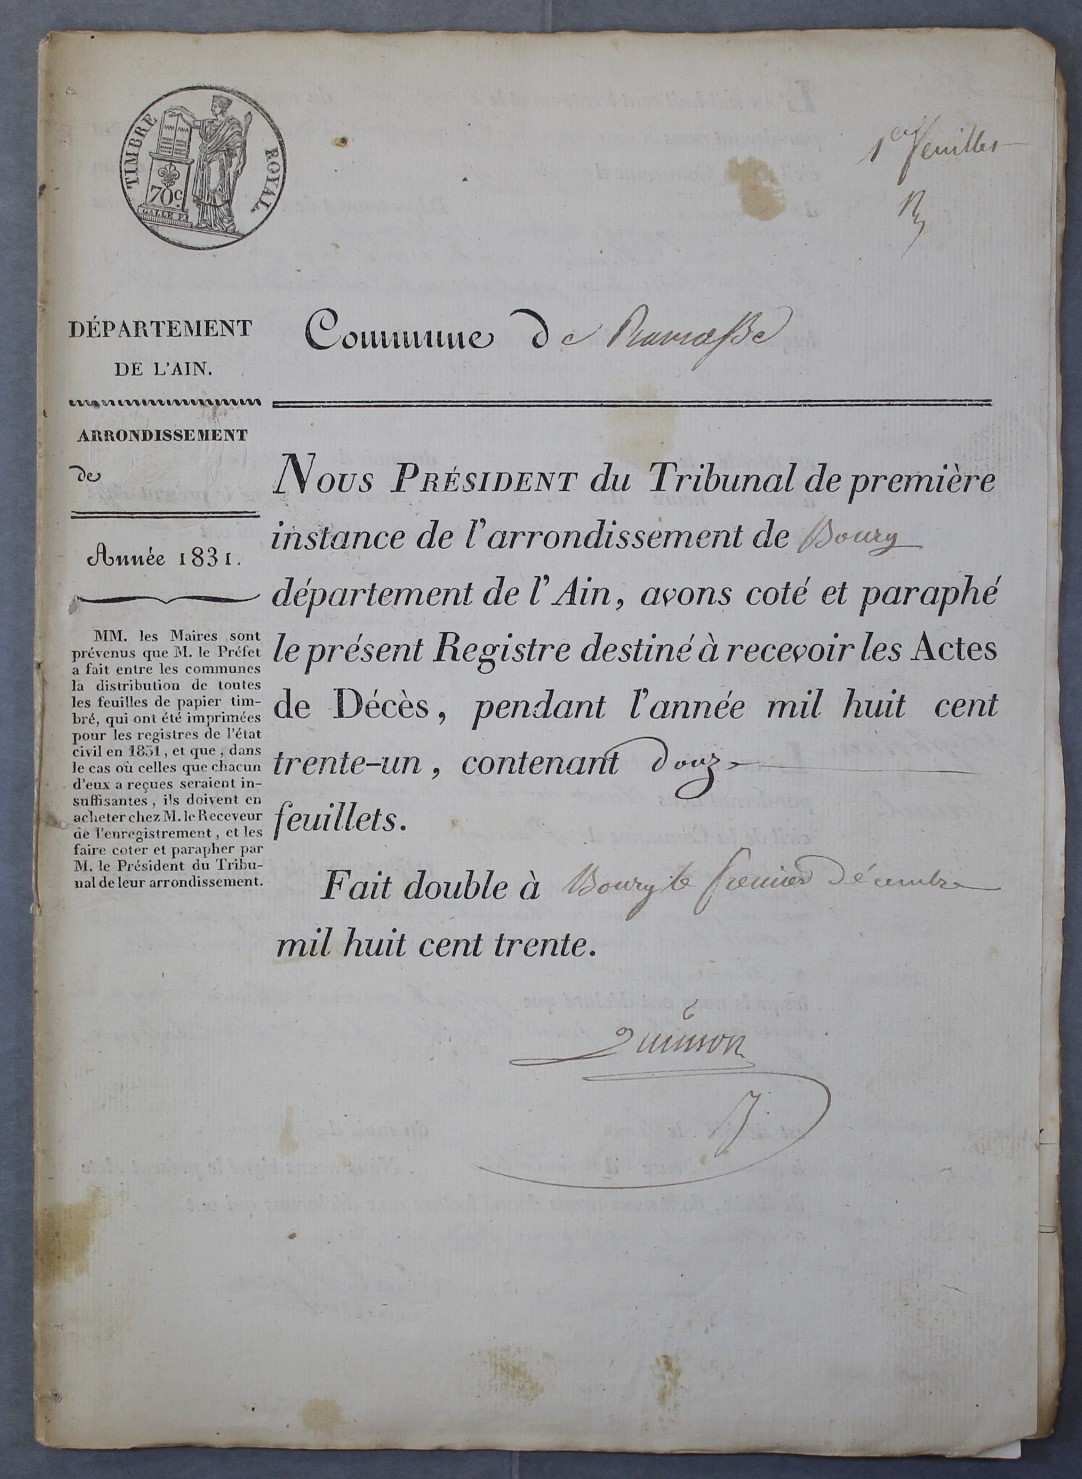 TIMBRE ROYAL
70c.
1er feuillet
DÉPARTEMENT
DE L'AIN.
Commune de Ramasse
ARRONDISSEMENT
de
Année 1831.
MM. les Maires sont
prévenus que M. le Préfet
a fait entre les communes
la distribution de toutes
les feuilles de papier tim-
bré, qui ont été imprimées
pour les registres de l'état
civil en 1831, et que, dans
le cas où celles que chacun
d'eux a reçues seraient in-
suffisantes, ils doivent en
acheter chez M. le Receveur
de l'enregistrement, et les
faire coter et parapher par
M. le Président du Tribu-
nal de leur arrondissement.
NOUS PRÉSIDENT du Tribunal de première
instance de l'arrondissement de Bourg
département de l'Ain, avons coté et paraphé
le présent Registre destiné à recevoir les Actes
de Décès, pendant l'année mil huit cent
trente-un, contenant douze
feuillets.
Fait double à Bourg le premier Décembre
mil huit cent trente.